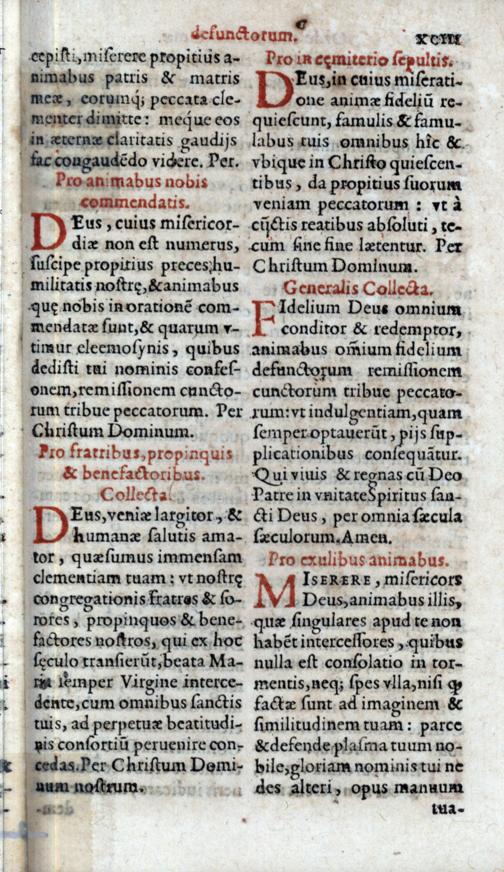 defunctorum.
XCIII
cepisti, miserere propitius a-
nimabus patris & matris
meæ, eorumq; peccata cle-
menter dimitte: meque eos
in æternæ claritatis gaudijs
fac congaudẽdo videre. Per.
Pro animabus nobis
commendatis.
DEus, cuius misericor-
diæ non est numerus,
suscipe propitius preces, hu-
militatis nostrę, & animabus
quę nobis in orationẽ com-
mendatæ sunt, & quarum v-
timur eleemosynis, quibus
dedisti tui nominis confes-
onem, remissionem cuncto-
rum tribue peccatorum. Per
Christum Dominum.
Pro fratribus, propinquis
& benefactoribus.
Collecta.
DEus, veniæ largitor, &
humanæ salutis ama-
tor, quæsumus immensam
clementiam tuam: vt nostrę
congregationis fratres & so-
rores, propinquos & bene-
factores nostros, qui ex hoc
sęculo transierũt, beata Ma-
ria semper Virgine interce-
dente, cum omnibus sanctis
tuis, ad perpetuæ beatitudi-
nis consortiũ peruenire con-
cedas. Per Christum Domi-
num nostrum.
Pro in cęmiterio sepultis.
DEus, in cuius miserati-
one animæ fideliũ re-
quiescunt, famulis & famu-
labus tuis omnibus hîc &
vbique in Christo quiescen-
tibus, da propitius suorum
veniam peccatorum: vt à
cũctis reatibus absoluti, te-
cum sine fine lætentur. Per
Christum Dominum.
Generalis Collecta.
FIdelium Deus omnium
conditor & redemptor,
animabus om̃ium fidelium
defunctorum remissionem
cunctorum tribue peccato-
rum: vt indulgentiam, quam
semper optauerũt, pijs sup-
plicationibus consequãtur.
Qui viuis & regnas cũ Deo
Patre in vnitate Spiritus san-
cti Deus, per omnia sæcula
sæculorum. Amen.
Pro exulibus animabus.
MISERERE, misericors
Deus, animabus illis,
quæ singulares apud te non
habẽt intercessores, quibus
nulla est consolatio in tor-
mentis, neq; spes vlla, nisi ꝙ
factæ sunt ad imaginem &
similitudinem tuam: parce
& defende plasma tuum no-
bile, gloriam nominis tui ne
des alteri, opus manuum
tua-